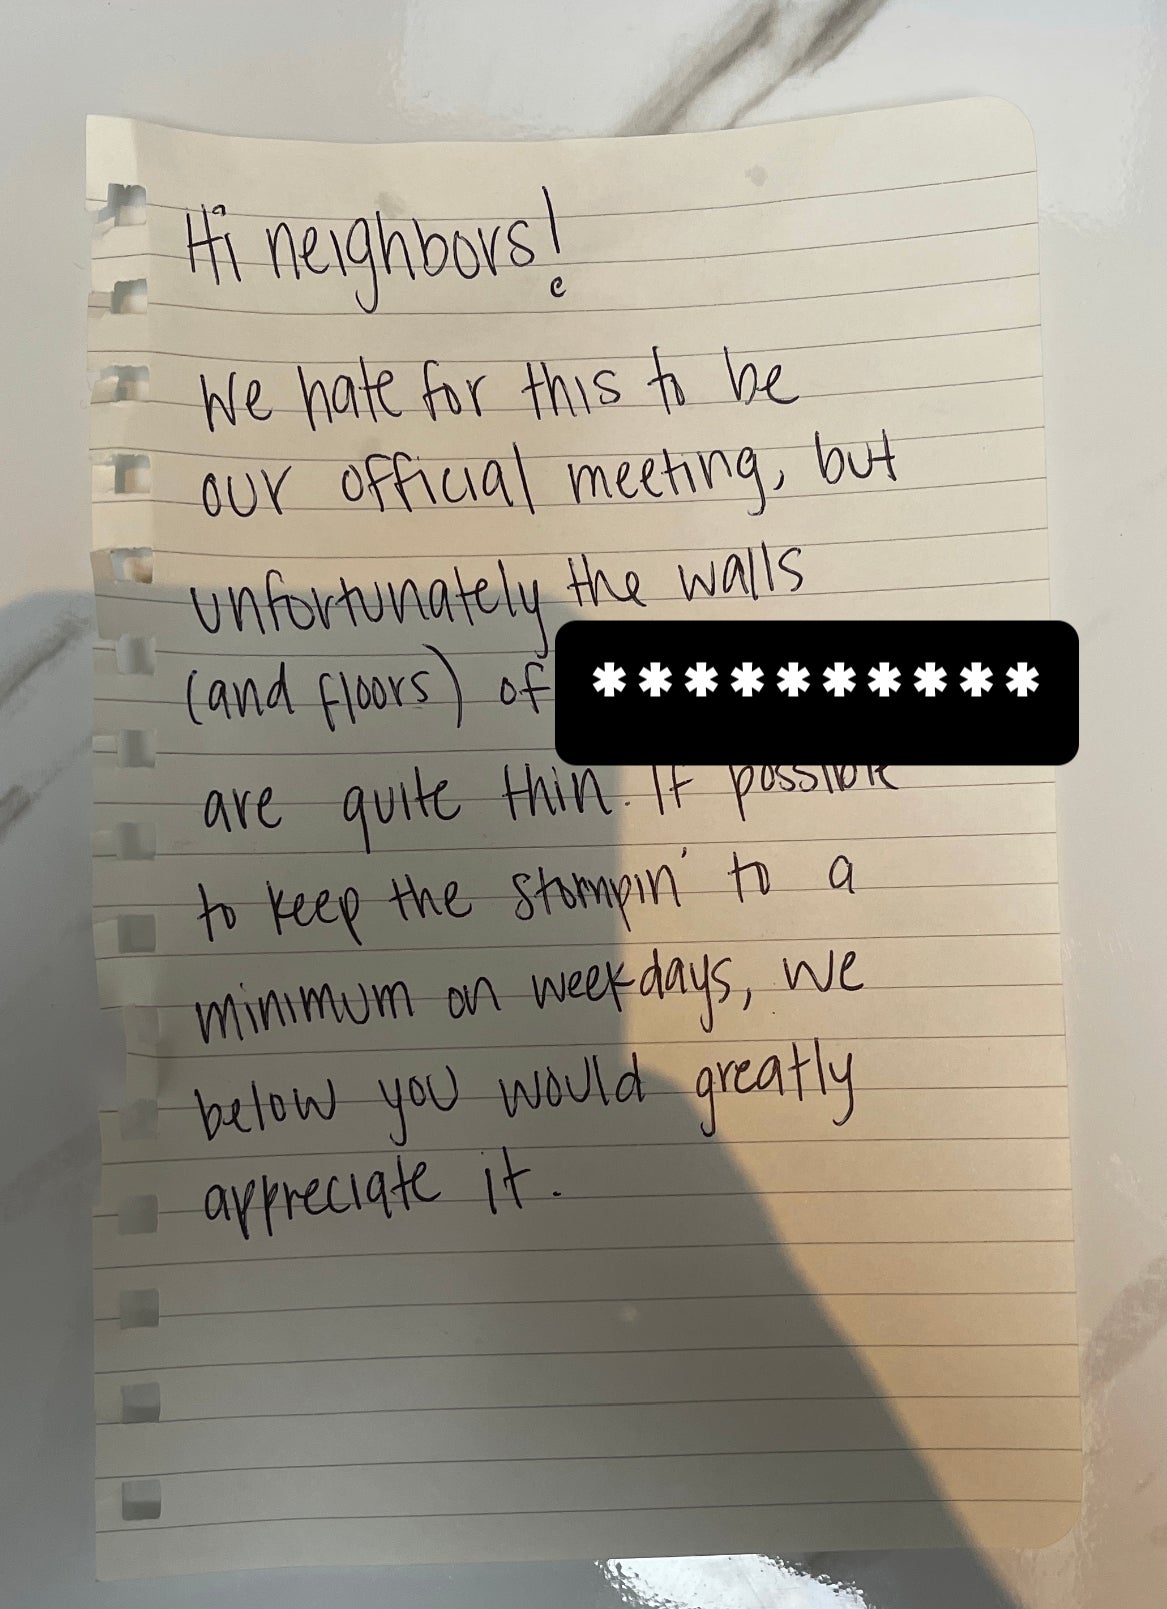 Hi neighbors!
We hate for this to be
our official meeting, but
unfortunately the walls
(and floors) of **********
are quite thin. If possible
to keep the stompin' to a
minimum on weekdays, we
below you would greatly
appreciate it.